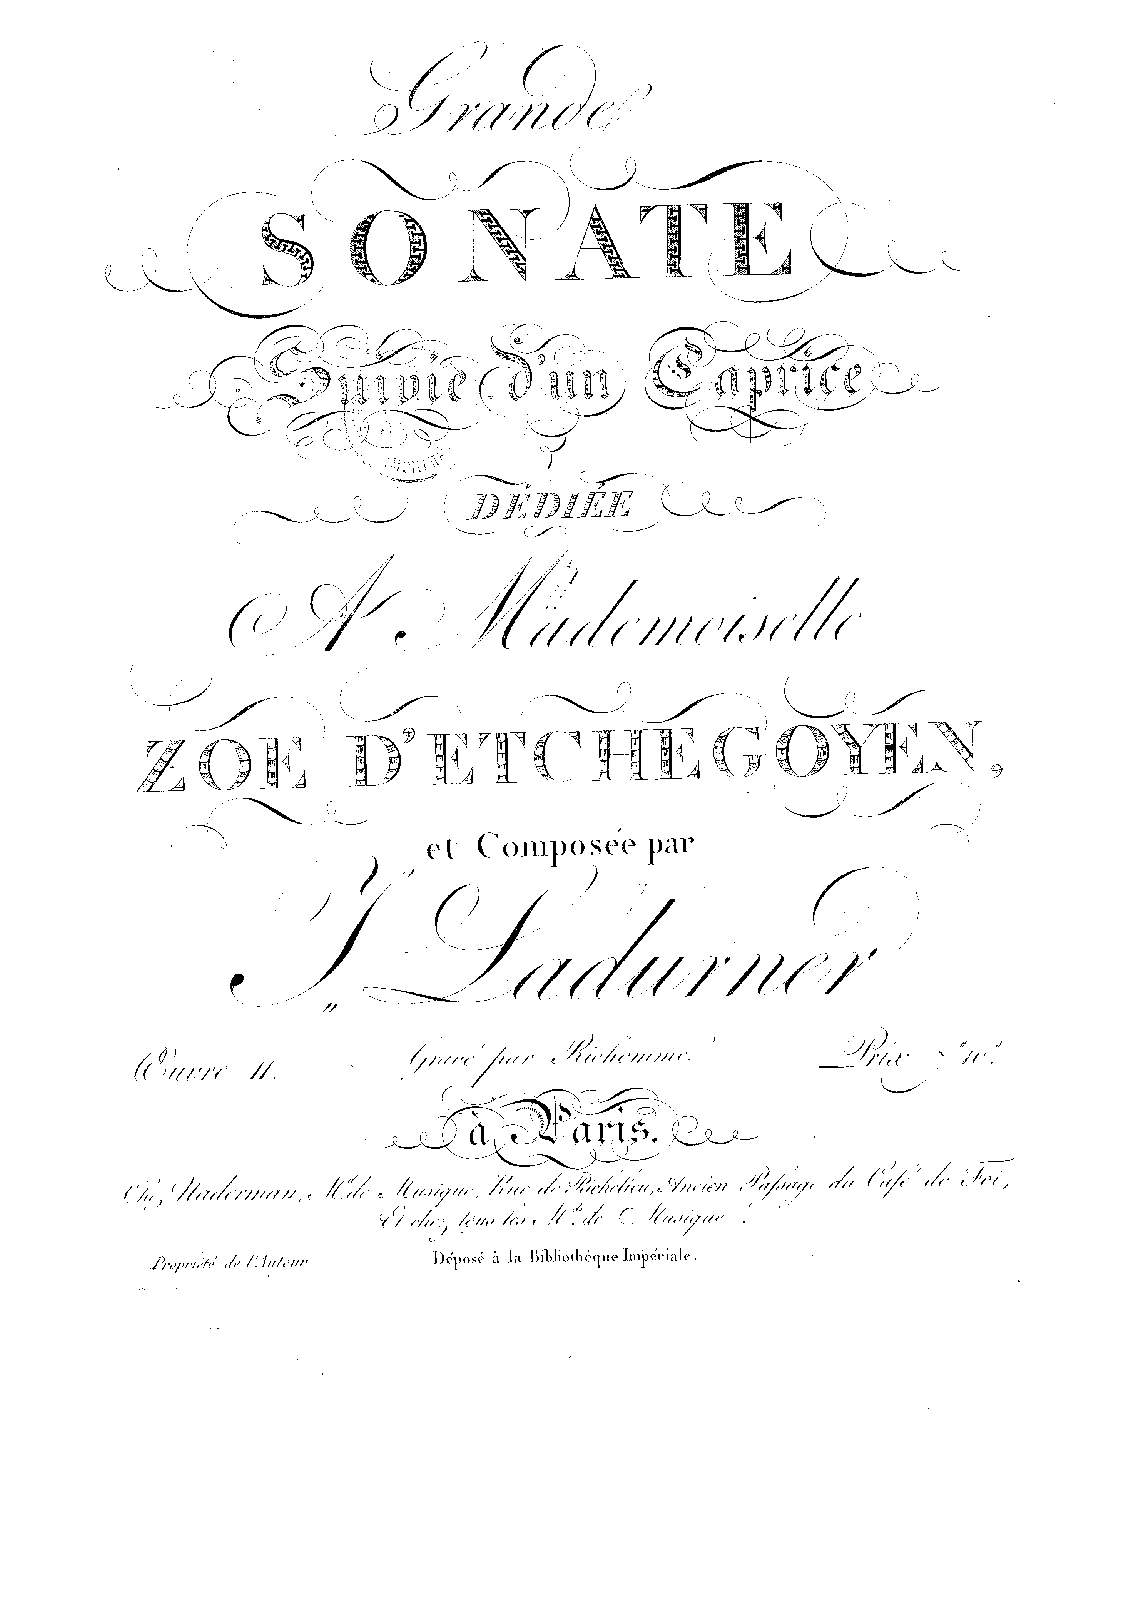 Grande
SONATE
Suivie d'un Caprice
DÉDIÉE
A Mademoiselle
ZOE D'ETCHEGOYEN,
et Composée par
J. Ladurner
Œuvre 11. Gravé par Richomme. Prix
à Paris.
Chez Naderman, Md. de Musique, Rue de Richelieu, Ancien Passage du Café de Foi,
Et chez tous les Mds. de Musique.
Propriété de l'Auteur Déposé à la Bibliothèque Impériale.